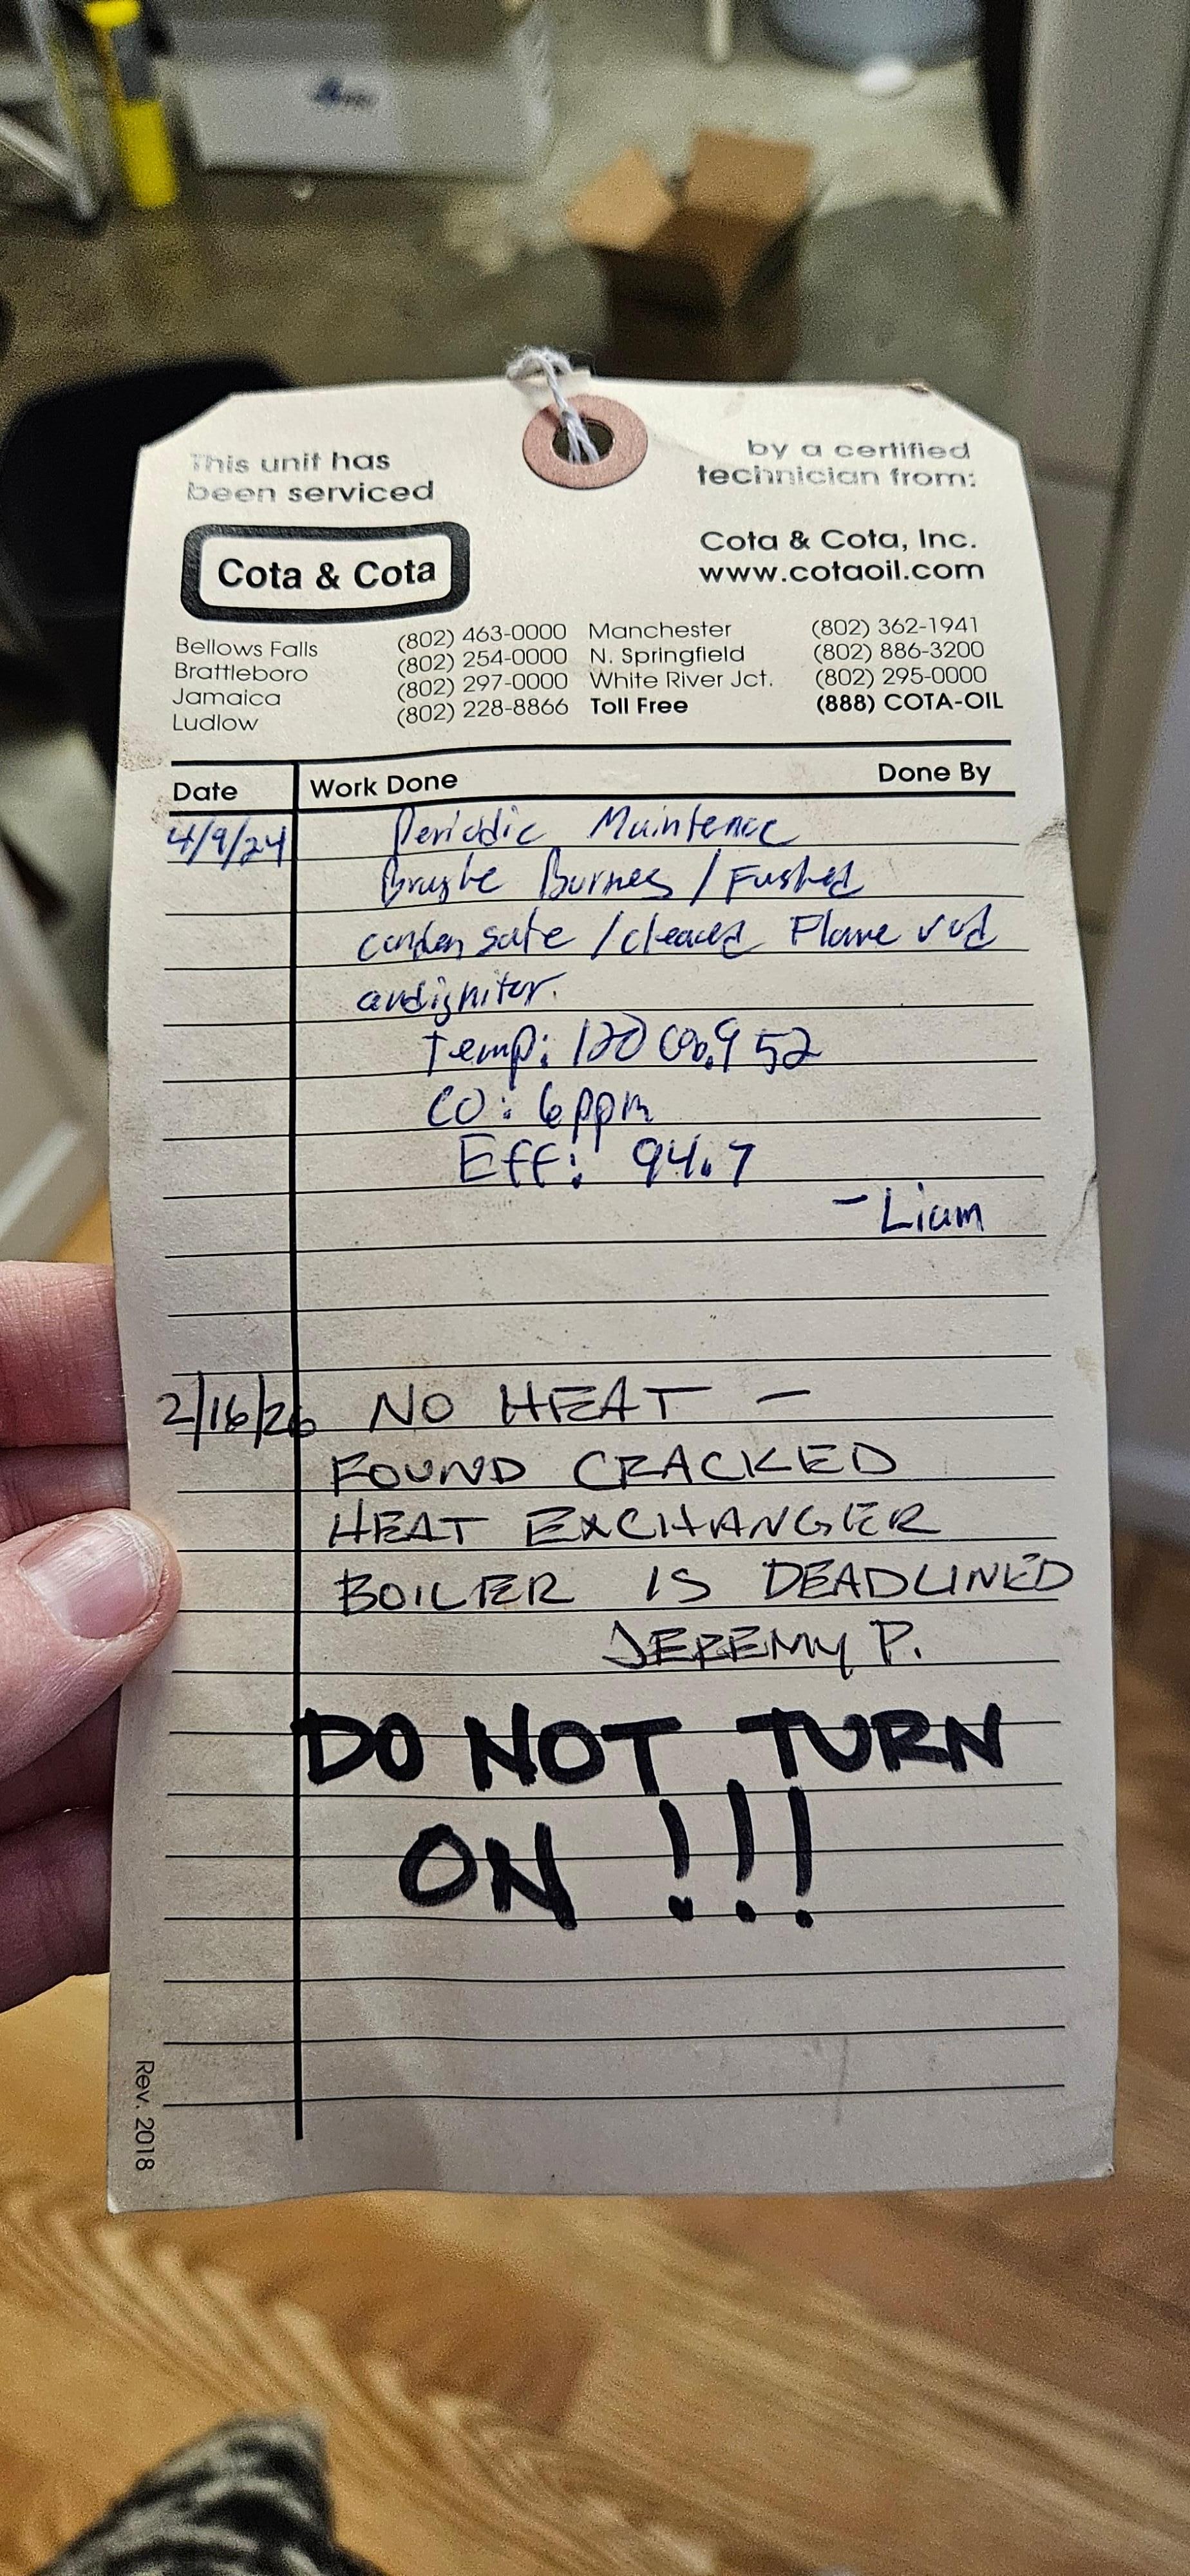 This unit has
been serviced
by a certified
technician from:
Cota & Cota
Cota & Cota, Inc.
www.cotaoil.com
Bellows Falls (802) 463-0000 Manchester (802) 362-1941
Brattleboro (802) 254-0000 N. Springfield (802) 886-3200
Jamaica (802) 297-0000 White River Jct. (802) 295-0000
Ludlow (802) 228-8866 Toll Free (888) COTA-OIL
Date Work Done Done By
4/9/24 Periodic Maintence
Burner / Fushed
condensate / cleaned Flame rod
and ignitor.
Temp: 120
CO: 6ppm
Eff: 94.7
- Liam
2/16/26 NO HEAT -
FOUND CRACKED
HEAT EXCHANGER
BOILER IS DEADLINED
JEREMY P.
DO NOT TURN
ON !!!
Rev. 2018